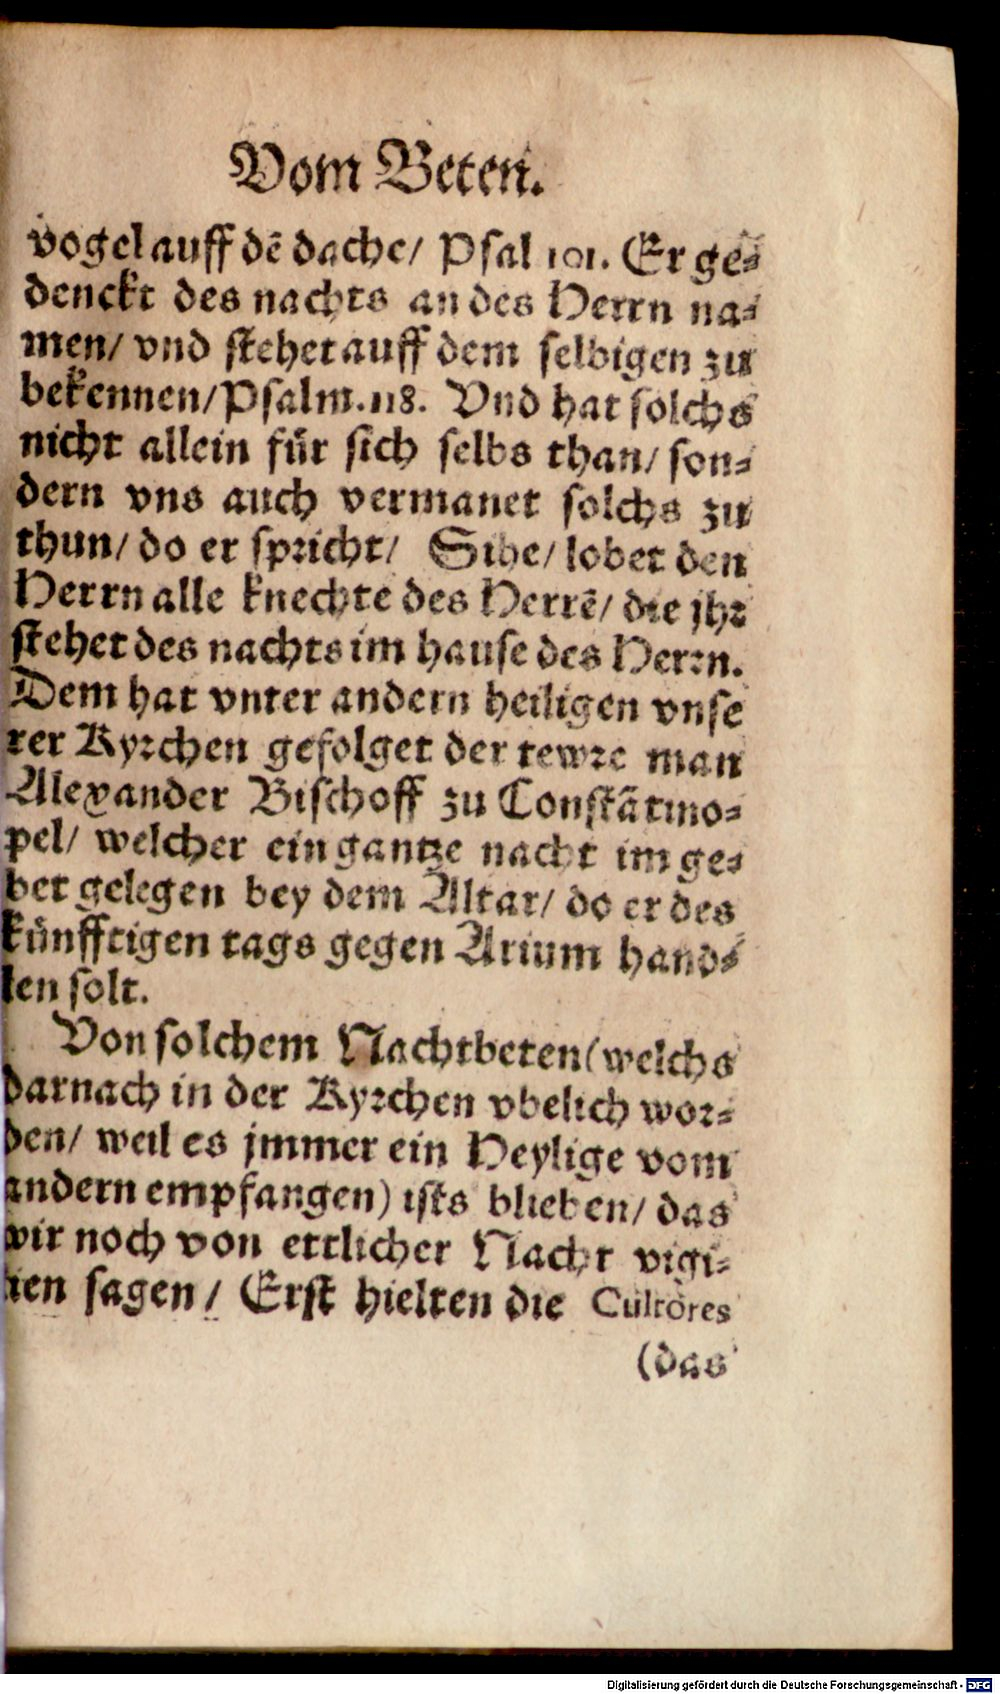 Vom Beten.
vogel auff dē dache/ Psal 101. Er ge⸗
denckt des nachts an des Herrn na⸗
men/ vnd stehet auff dem selbigen zu
bekennen/Psalm.118. Vnd hat solchs
nicht allein für sich selbs than/ son⸗
dern vns auch vermanet solchs zu
thun/ do er spricht/ Sihe/ lobet den
Herrn alle knechte des Herrē/ die jhr
stehet des nachts im hause des Herrn.
Dem hat vnter andern heiligen vnse
rer Kyrchen gefolget der tewre man
Alexander Bischoff zu Constātino⸗
pel/ welcher ein gantze nacht im ge⸗
bet gelegen bey dem Altar/ do er des
künfftigen tags gegen Arium hand⸗
len solt.
Von solchem Nachtbeten(welchs
darnach in der Kyrchen vbelich wor⸗
den/ weil es jmmer ein Heylige vom
andern empfangen) ists blieben/ das
wir noch von ettlicher Nacht vigi⸗
lien sagen/ Erst hielten die Cultores
(das
Digitalisierung gefördert durch die Deutsche Forschungsgemeinschaft - DFG